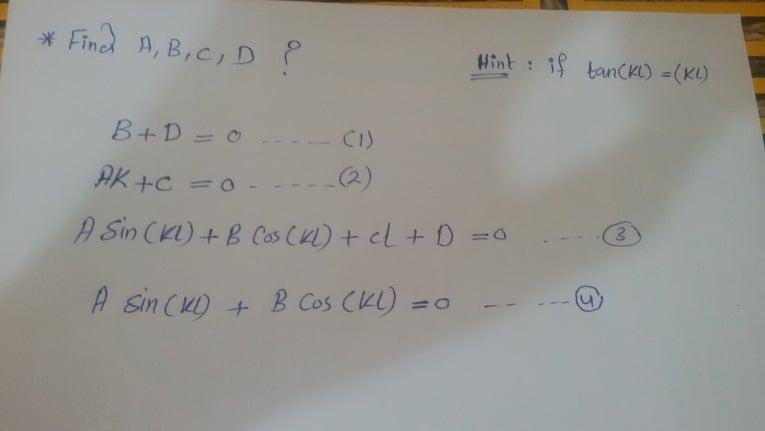 * Find A, B, C, D ?
Hint : if tan(KL) = (KL)
B + D = 0 ------ (1)
AK + C = 0 ------ (2)
A Sin(KL) + B Cos(KL) + CL + D = 0 ---- (3)
A Sin(KL) + B Cos(KL) = 0 -- --- (4)